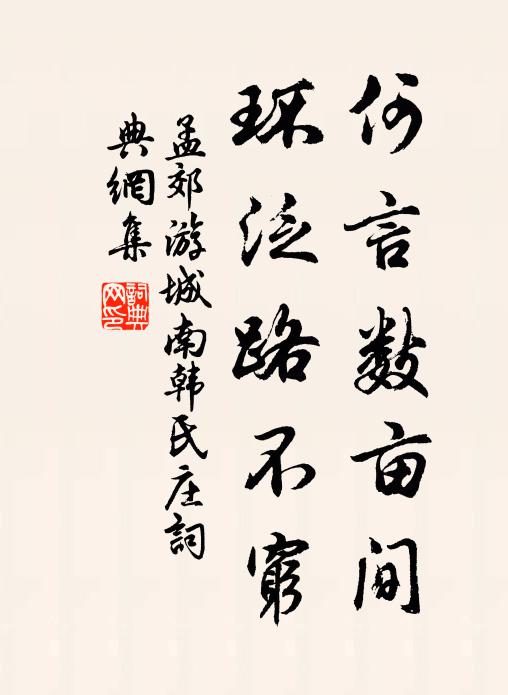 何言数亩间
环泛路不窮
孟郊游城南韩氏庄詞
典網集
詞典
网印